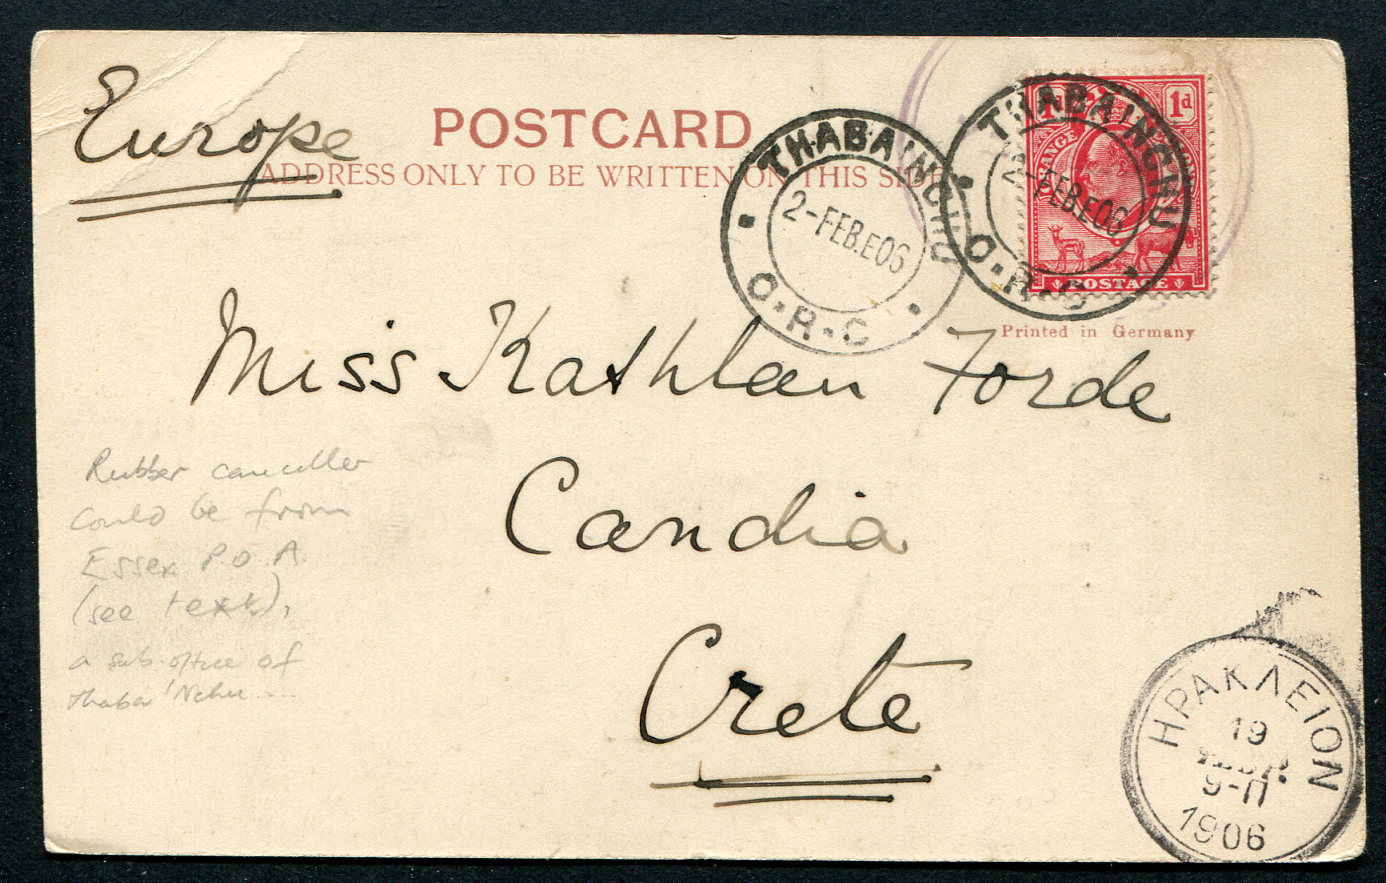 Europe
POSTCARD
ADDRESS ONLY TO BE WRITTEN ON THIS SIDE
THABA 'NCHU
2-FEB.E06
O.R.C
THABA 'NCHU
2-FEB.E06
O.R.C
1d 1d
POSTAGE
Printed in Germany
Miss Kathleen Forde
Candia
Crete
Rubber canceller
could be from
Essex P.O.A.
(see text),
a sub-office of
Thaba 'Nchu....
ΗΡΑΚΛΕΙΟΝ
19
ΦΕΒΡ.
9-11
1906